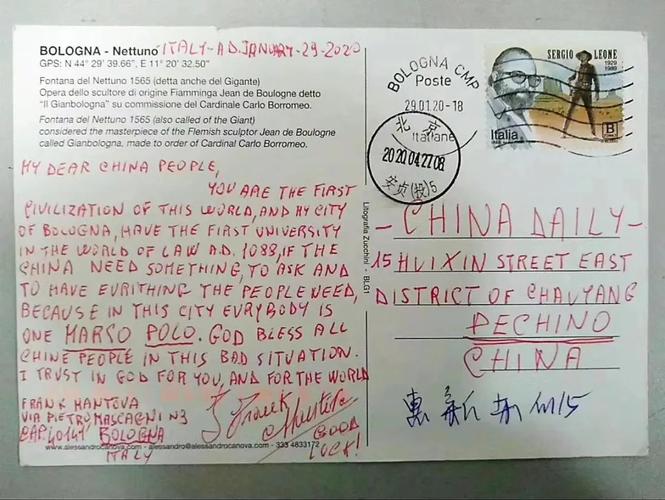 BOLOGNA - Nettuno ITALY-A.D. JANUARY-29-2020
GPS: N 44° 29' 39.66", E 11° 20' 32.50"
Fontana del Nettuno 1565 (detta anche del Gigante)
Opera dello scultore di origine Fiamminga Jean de Boulogne detto
"Il Gianbologna" su commissione del Cardinale Carlo Borromeo.
Fontana del Nettuno 1565 (also called of the Giant)
considered the masterpiece of the Flemish sculptor Jean de Boulogne
called Gianbologna, made to order of Cardinal Carlo Borromeo.
MY DEAR CHINA PEOPLE,
YOU ARE THE FIRST
CIVILIZATION OF THIS WORLD, AND MY CITY
OF BOLOGNA, HAVE THE FIRST UNIVERSITY
IN THE WORLD OF LAW A.D. 1088, IF THE
CHINA NEED SOMETHING, TO ASK AND
TO HAVE EVRITHING THE PEOPLE NEED,
BECAUSE IN THIS CITY EVRYBODY IS
ONE MARCO POLO. GOD BLESS ALL
CHINE PEOPLE IN THIS BAD SITUATION.
I TRUST IN GOD FOR YOU, AND FOR THE WORLD
FRANK MANTOVA
VIA PIETRO MASCAGNI N3
CAP. 40141 BOLOGNA
ITALY
Frank Mantova
GOOD
LUCK!
www.alessandrocanova.com - alessandro@alessandrocanova.com - 333 4833172
Litografia Zucchini - BLG1
BOLOGNA CMP
Poste
29.01.20-18
Italiane
北京
2020.04.27.08
安贞(投)5
SERGIO LEONE
1929
1989
Italia
B
- CHINA DAILY -
15 HUIXIN STREET EAST
DISTRICT OF CHAUYANG
PECHINO
CHINA
惠新东街15